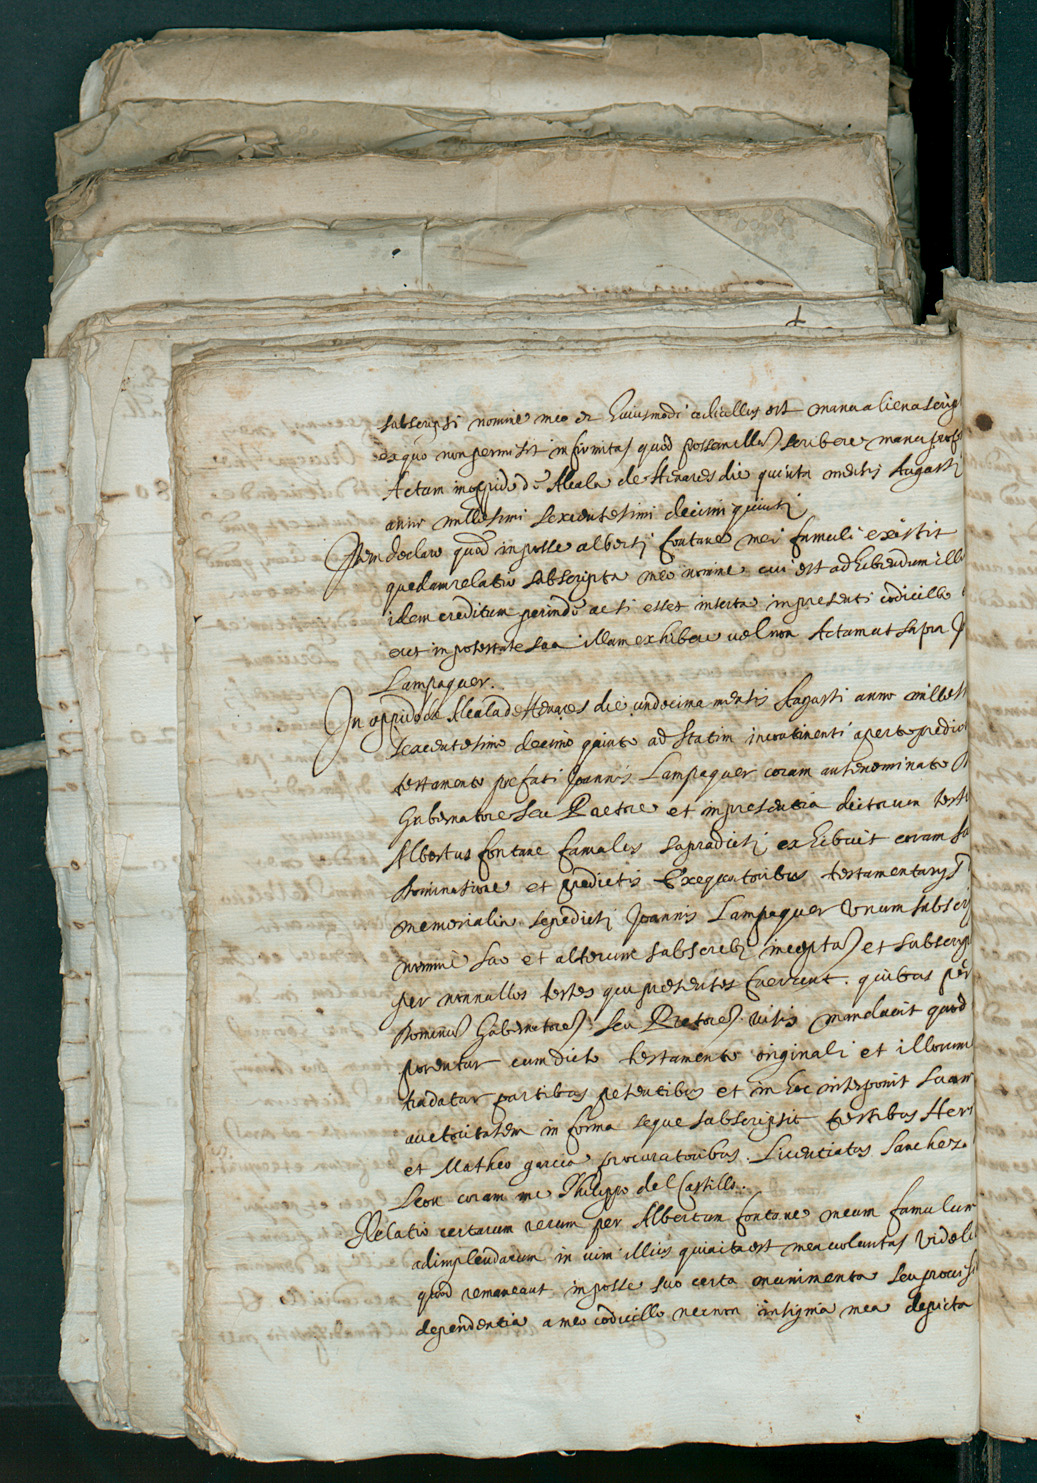 subscripsi nomine meo et huiusmodi codicillus est manu aliena scrip
ea quo non permisit infirmitas quod possem illum scribere manu prop
Actum in oppido de Alcala de Henares die quinta mensis Augusti
anno millesimi sexcentesimi decimi quinti
Item declaro quod in posse alberti fontane mei famuli existit
quedam relatio subscripta meo nomine cui est adhibendum ill
idem creditum perinde ac si esset inserta in presenti codicillo
erit in potestate sua illam exhibere vel non Actum ut supra J
Lampaquer.
In oppido de Alcala de Henares die undecima mensis Augusti anno milless
sexcentesimo decimo quinto ad statim incontinenti aperto predic
testamento prefati Joannis Lampaquer coram antenominato
Gubernatore seu Praetore et in presentia dictorum testi
Albertus fontane famulus supradicti exhibuit coram su
Dominatione et predictis Exequutoribus testamentarys
memorialia supredicti Joannis Lampaquer vnum subscri
nomine suo et alterum subscrebi inceptum et subscrip
per nonnullos testes qui presentes fuerunt. quibus per
Dominum Gubernatorem seu Pretorem visis mandavit quod
ponentur cum dicto testamento originali et illorum
tradatur partibus petentibus et in hoc interponit suam
auctoritatem in forma seque subscripsit testibus Her
et Matheo garcia procuratoribus. Licenciatus Sanchez
Leon coram me Philippo del Castillo.
Relatio certarum rerum per Albertum fontane meum famulum
adimplendarum in vim illius quia ita est mea voluntas videli
quod remaneant in posse suo certa munimenta seu provis
dependentia a meo codicillo necnon insignia mea depicta